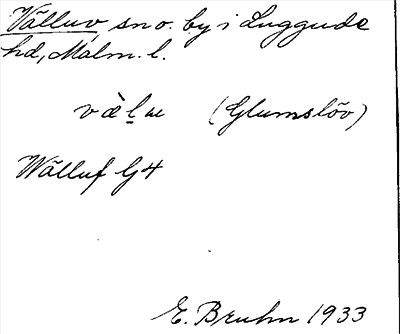 Välluv sn o. by i Luggude
hd, Malm. l.
væ̀lu (Glumslöv)
Wälluf G4
E. Bruhn 1933